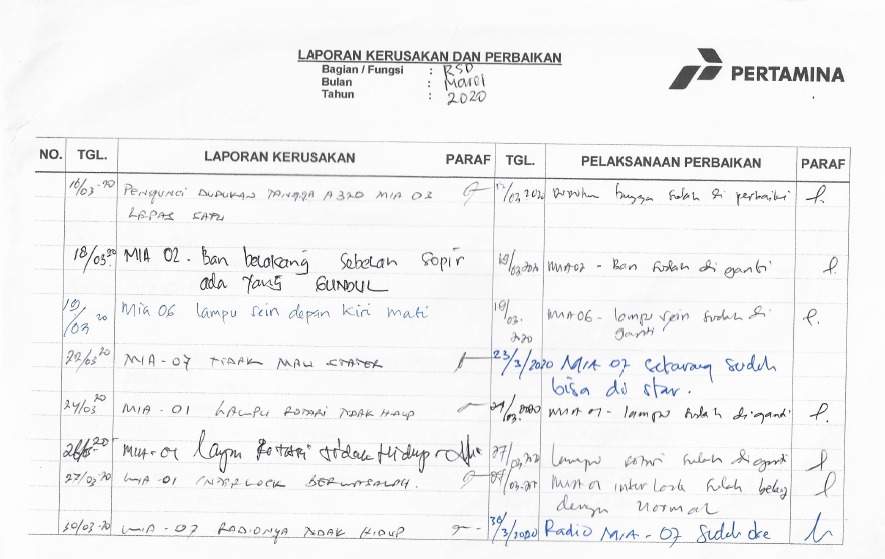 LAPORAN KERUSAKAN DAN PERBAIKAN
Bagian / Fungsi : RSD
Bulan : Maret
Tahun : 2020
PERTAMINA
NO. TGL. LAPORAN KERUSAKAN PARAF TGL. PELAKSANAAN PERBAIKAN PARAF
16/03-20 PENGUNCI DUDUKAN TANGGA A320 MIA 03 /03-2020 tangga sudah di perbaiki
LEPAS SATU
18/03 20 MIA 02 - Ban belakang sebelah sopir 19/03-2020 MIA 02 - Ban sudah di ganti
ada yang GUNDUL
19/03 20 Mia 06 lampu sein depan kiri mati 19/03-2020 MIA 06 - lampu sein sudah di
ganti
22/03 20 MIA - 07 TIDAK MAU STATER 23/3/2020 MIA 07 sekarang sudah
bisa di star.
24/03 20 MIA - 01 LAMPU ROTARI TIDAK HIDUP /03-2020 MIA 01 - lampu sudah diganti
MIA - 01 lampu ROTARI tidak Hidup 27/03-20 lampu rotari sudah diganti
27/03-20 MIA - 01 INTERLOCK BERMASALAH. MIA 01 interlock sudah
dengan normal
30/03-20 MIA - 07 RADIONYA TIDAK HIDUP 30/3/2020 Radio MIA - 07 sudah oke